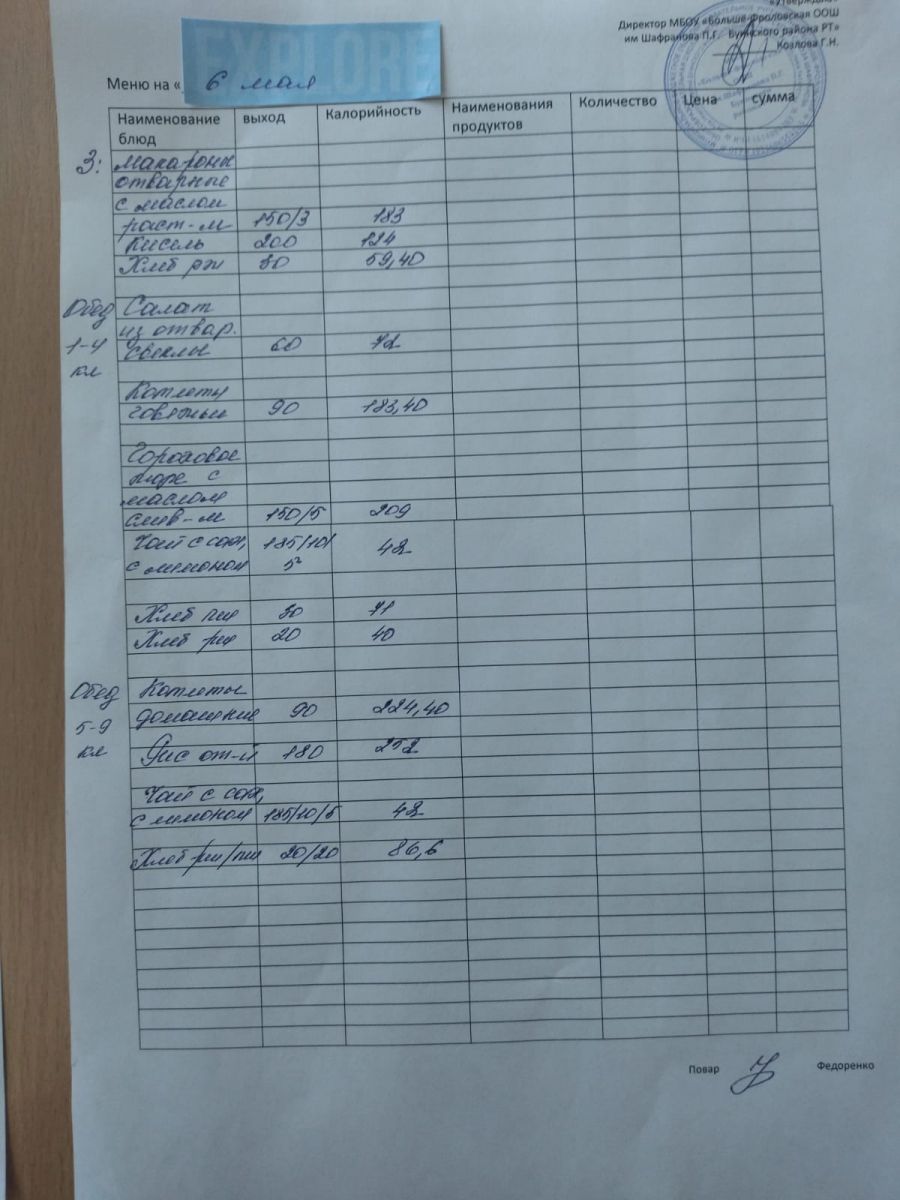 «Утверждаю»
Директор МБОУ «Больше-Фроловская ООШ
им Шафранова П.Г. Буинского района РТ»
Козлова Г.Н.
EXPLORE
Меню на « 6 мая
Наименование блюд выход Калорийность Наименования продуктов Количество Цена сумма
З: Макароны
отварные
с маслом
раст-м 150/3 183
Кисель 200 124
Хлеб рж 30 59,40
Обед Салат
из отвар.
1-4 свеклы 60 72
кл
Котлеты
говяжьи 90 183,40
Гороховое
пюре с
маслом
слив-м 150/5 209
Чай с сах, 185/10/ 42
с лимоном 5
Хлеб пш 30 71
Хлеб рж 20 40
Обед Котлеты
5-9 домашние 90 224,40
кл Рис от-й 180 252
Чай с сах,
с лимоном 185/10/5 42
Хлеб рж/пш 20/20 86,6
Повар Федоренко